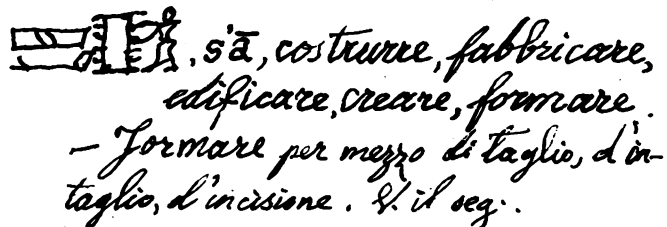 , s'ā, costrurre, fabbricare,
edificare, creare, formare.
– Formare per mezzo di taglio, d'in-
taglio, d'incisione. V. il seg..